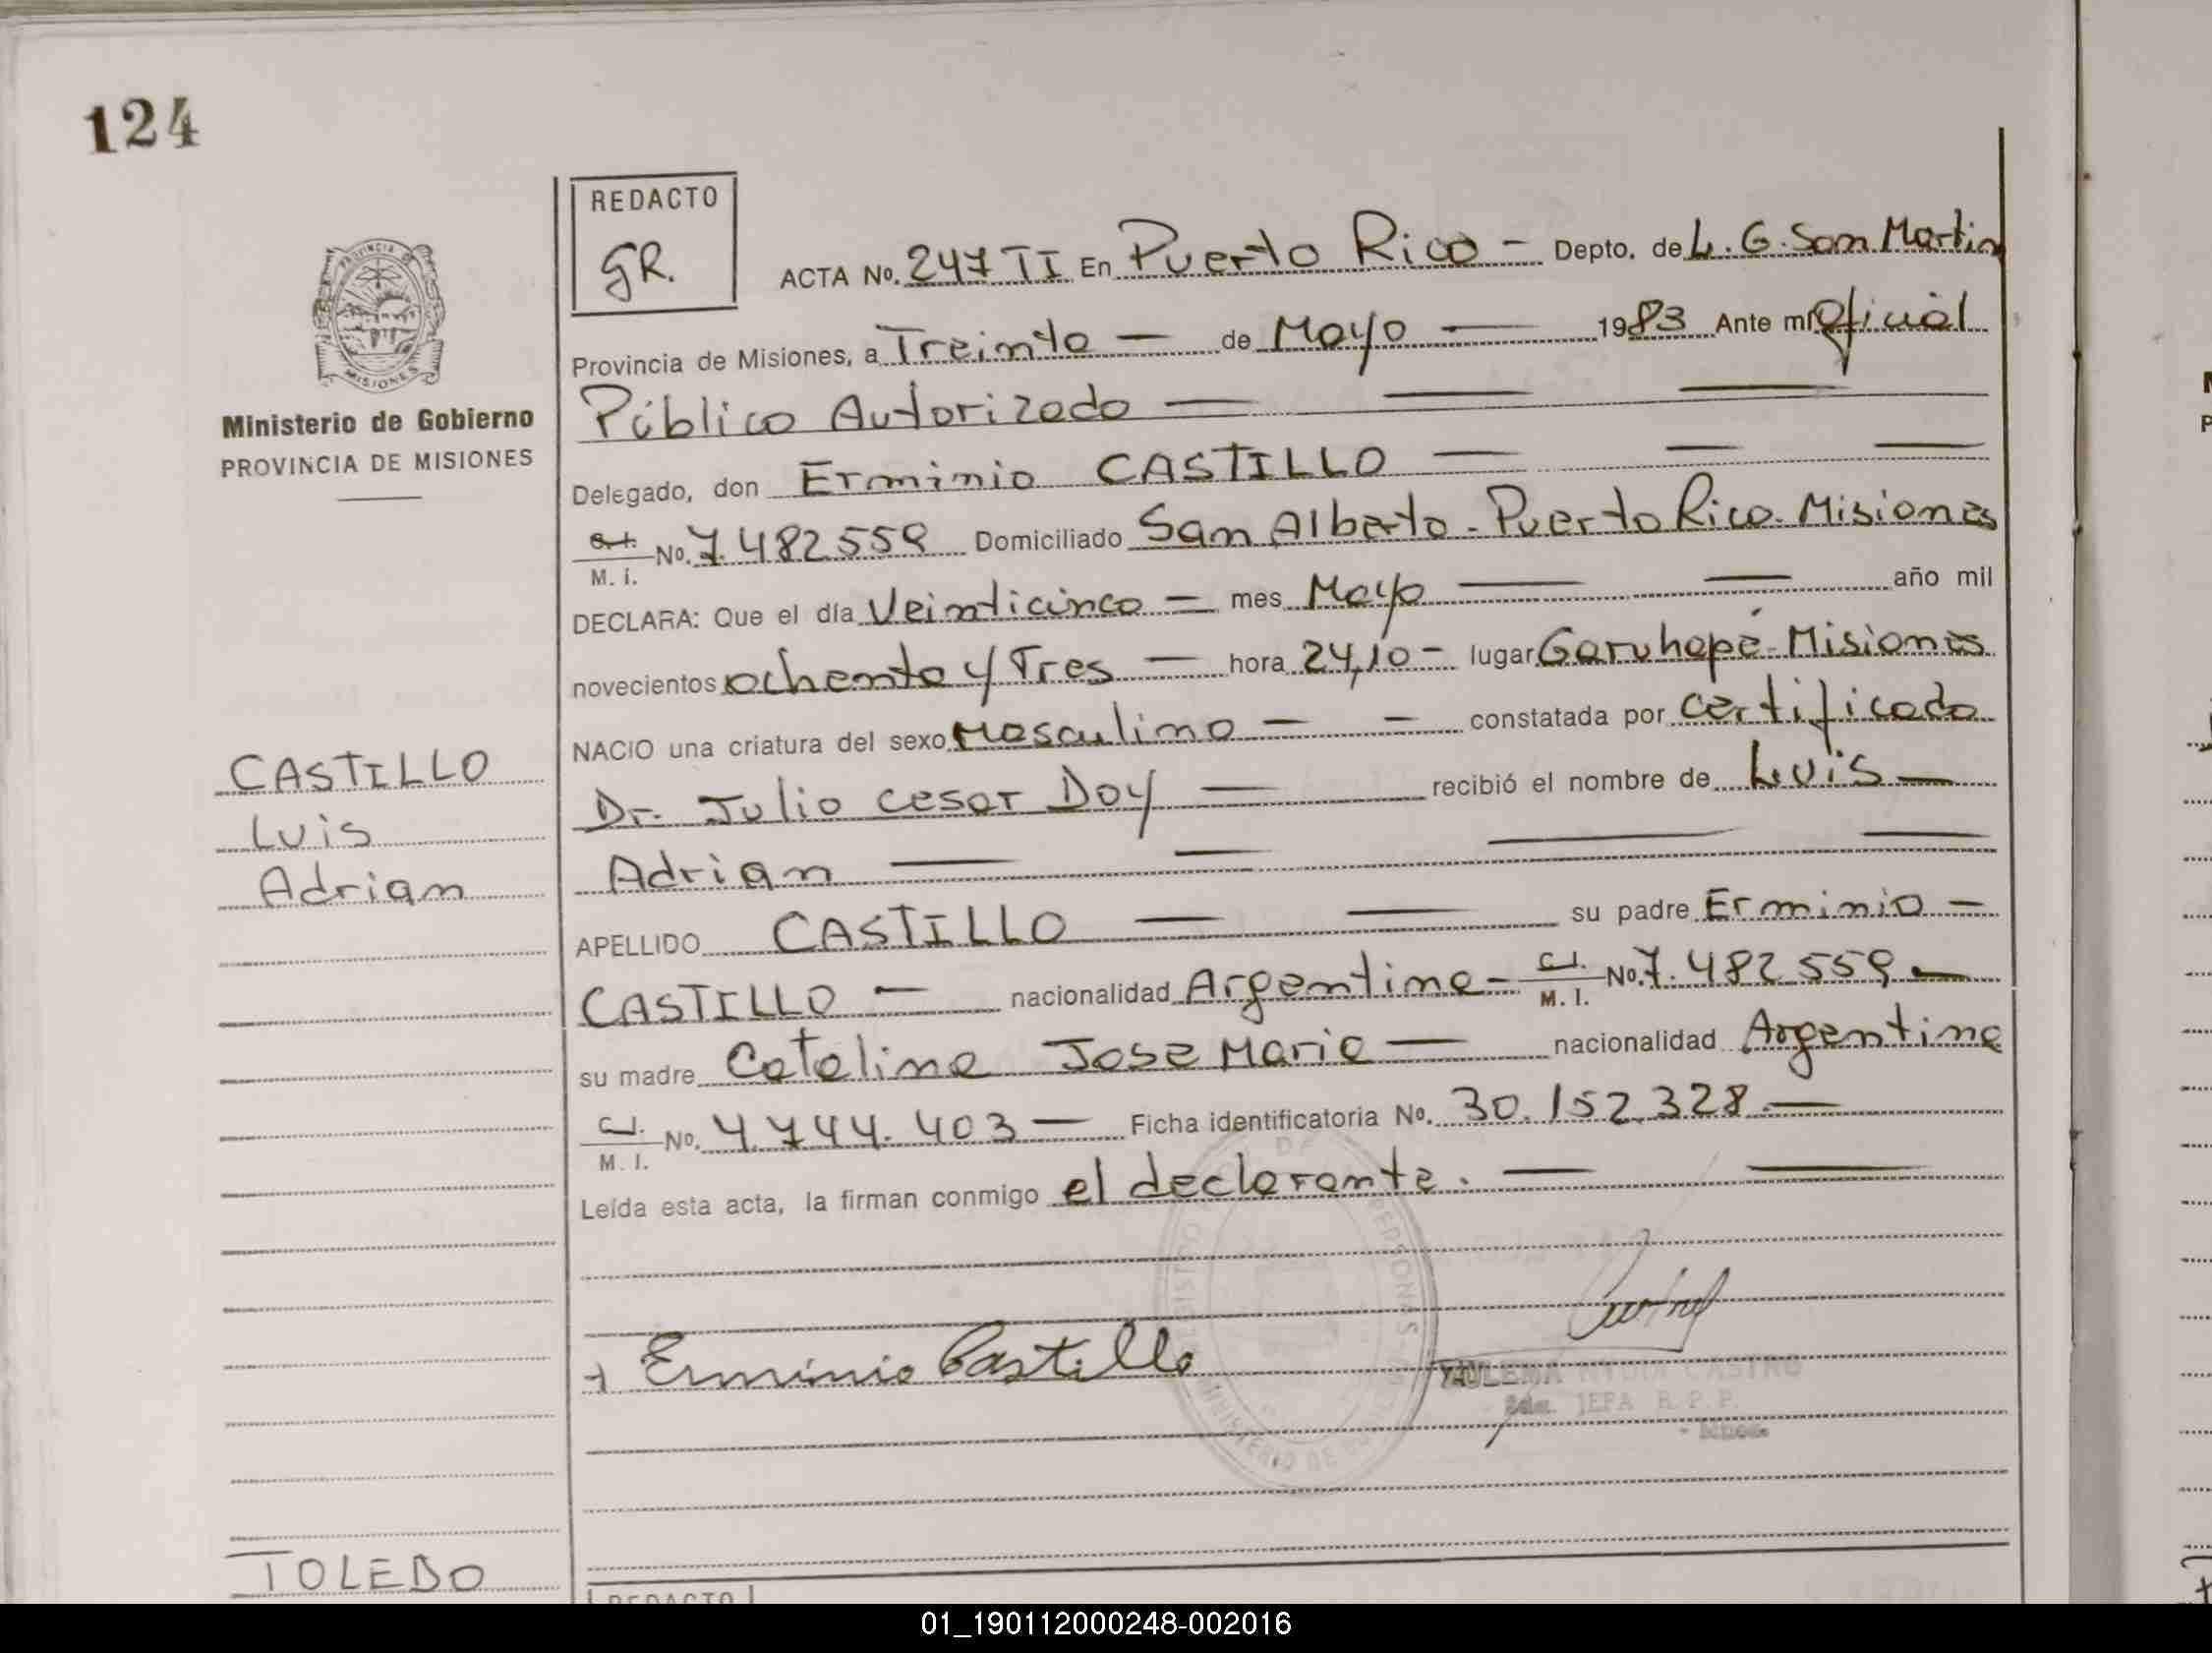 124
REDACTO
GR.
ACTA No. 247 TI En Puerto Rico - Depto. de L. G. San Martin
Provincia de Misiones, a Treinta - de Mayo - 1983 Ante mi Oficial
Público Autorizado
Delegado, don Erminio CASTILLO
M. I. No. 7.482.559 Domiciliado San Alberto - Puerto Rico - Misiones
DECLARA: Que el día Veinticinco - mes Mayo año mil
novecientos ochenta y Tres - hora 24,10 - lugar Garuhapé - Misiones
NACIO una criatura del sexo Masculino - - constatada por certificado
Dr. Julio Cesar Doy - recibió el nombre de Luis -
Adrian
APELLIDO CASTILLO su padre Erminio -
CASTILLO - nacionalidad Argentina - C.I. M. I. No. 7.482.559 -
su madre Catalina Jose Maria - nacionalidad Argentina
C.I. M. I. No. 4.744.403 - Ficha identificatoria No. 30.152.328 -
Leída esta acta, la firman conmigo el declarante.
Erminio Castillo
ZULEMA NYDIA CASTRO
JEFA R. P. P.
PROVINCIA DE
MISIONES
Ministerio de Gobierno
PROVINCIA DE MISIONES
CASTILLO
Luis
Adrian
TOLEDO
REDACTO
01_190112000248-002016